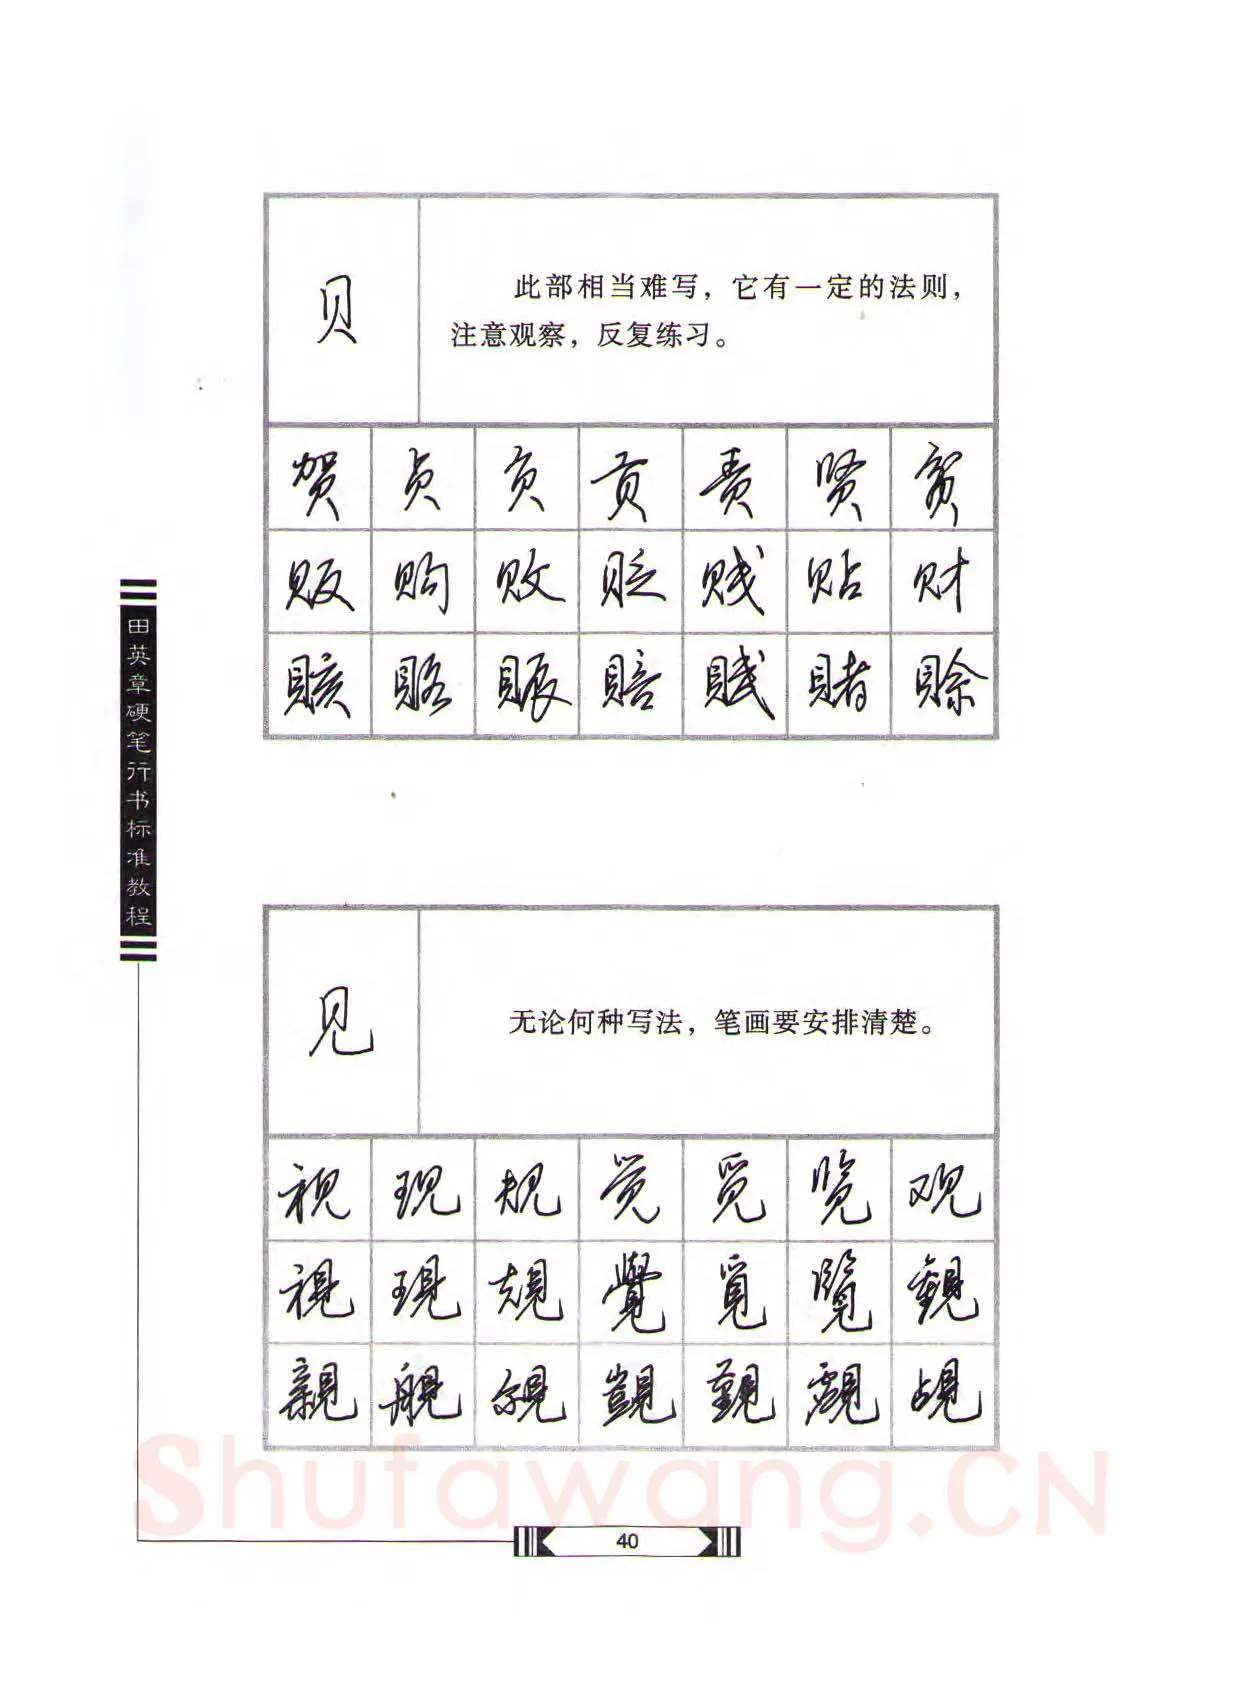 贝
此部相当难写，它有一定的法则，
注意观察，反复练习。
贺 贞 负 贡 责 贤
贩 购 败 贬 贱 贴 财
赅 赂 赈 赔 赌 赊
田英章硬笔行书标准教程
见
无论何种写法，笔画要安排清楚。
视 现 规 觉 觅 览 观
視 現 規 覺 覓 覽 觀
親 覬 覲 覷 覘
Shufawang.CN
40